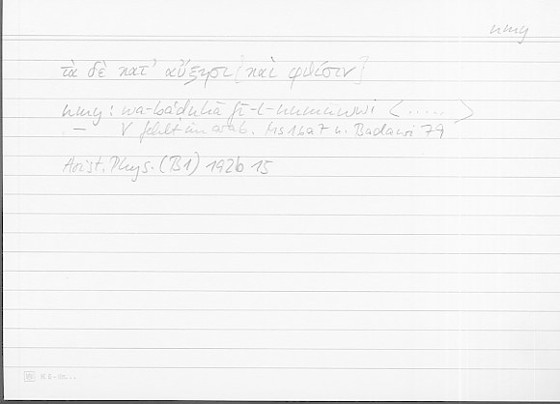 nmy
τὰ δὲ κατ' αὔξησι [καὶ φθίσιν]
nmy: wa-baʿḍuhā fī-l-numuwwi <.....>
— V fehlt im arab. Ms 162a7 u. Badawi 79
Arist. Phys. (B1) 192b 15